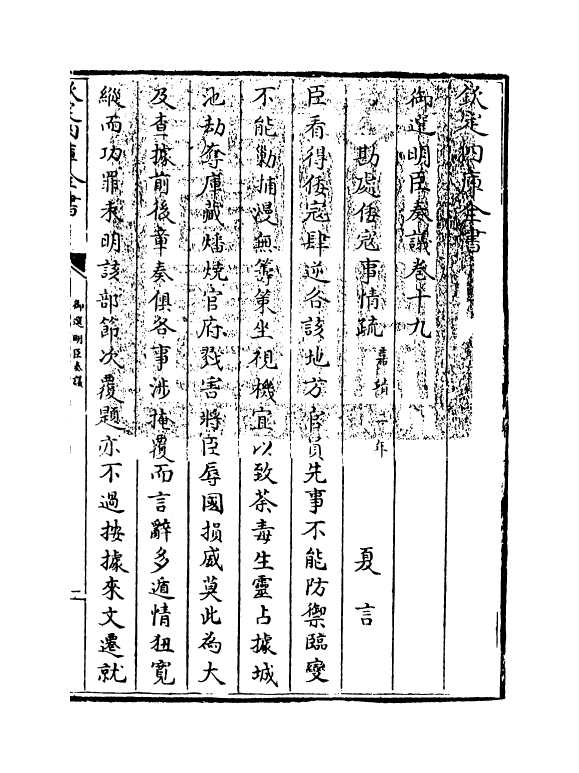 欽定四庫全書
御選明臣奏議卷十九
勘處倭寇事情疏 嘉靖二年 夏言
臣看得倭寇肆逆各該地方官員先事不能防禦臨變
不能勦捕漫無籌策坐視機宜以致荼毒生靈占據城
池劫奪庫藏燔燒官府戮害將臣辱國損威莫此為大
及查據前後章奏俱各事涉掩覆而言辭多遁情狂寬
縱而功罪未明該部節次覆題亦不過按據來文遷就
欽定四庫全書
御選明臣奏議